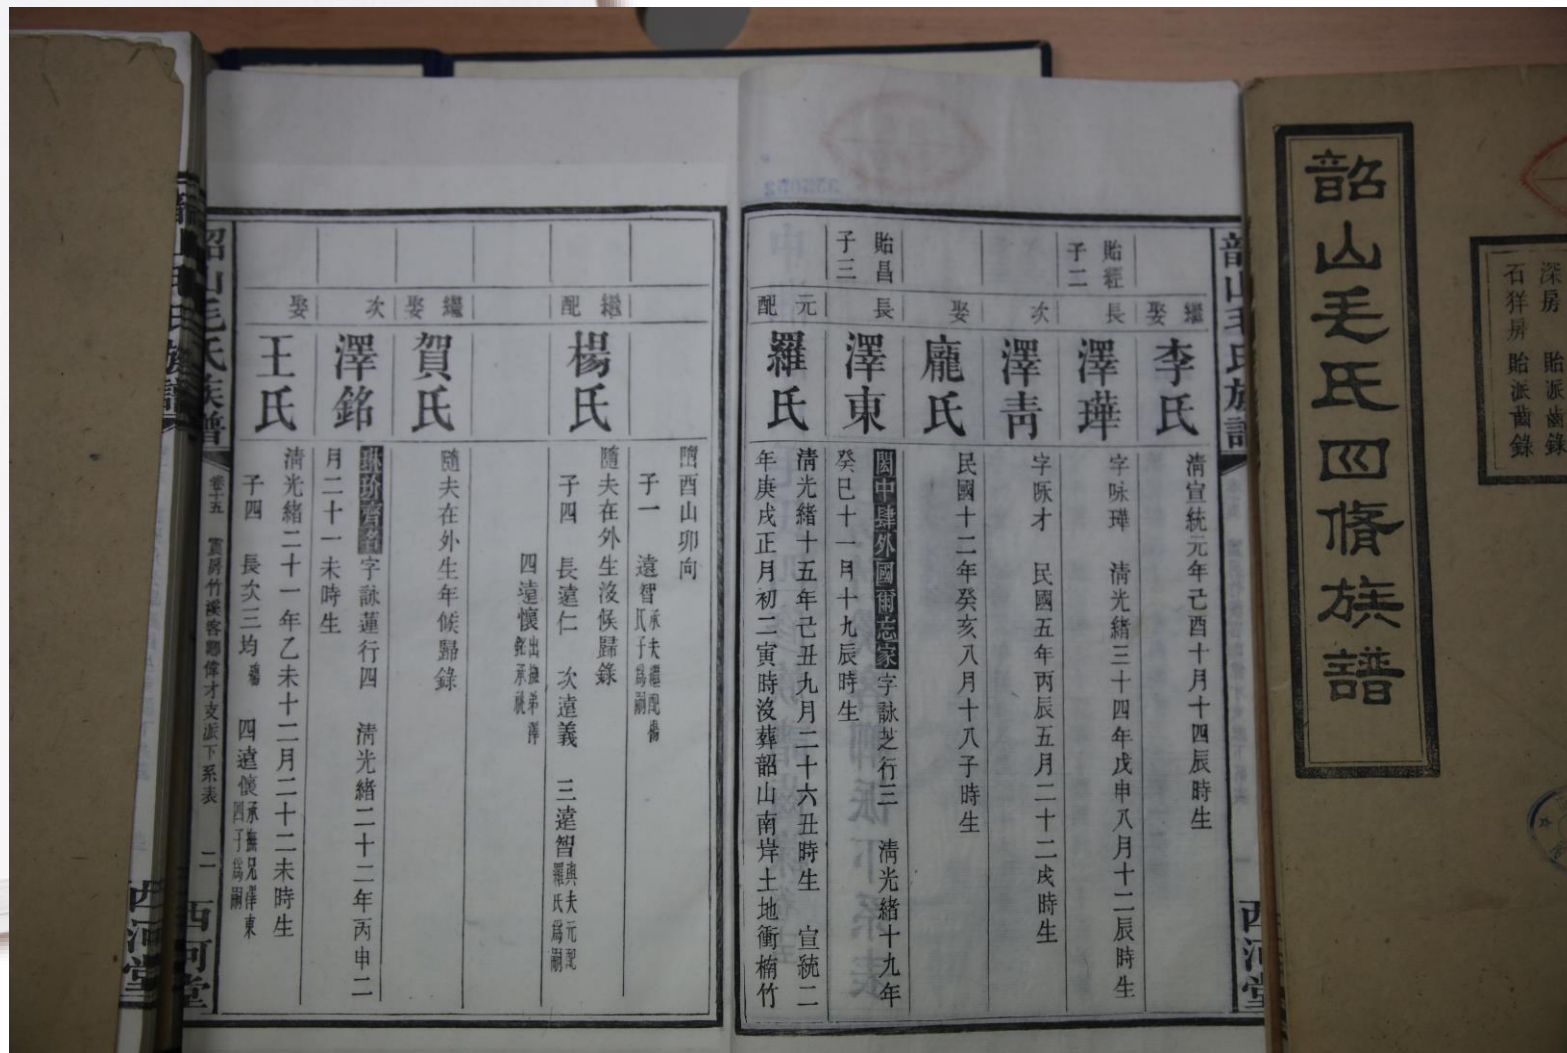 韶山毛氏四脩族譜
深房　貽派齒錄
石羊房　貽派齒錄
西河堂
繼娶
李氏
清宣統元年己酉十月十四辰時生
貽經子二
長
澤璍
字咏璍　清光緒三十四年戊申八月十二辰時生
次
澤青
字咏才　民國五年丙辰五月二十二戌時生
娶
龐氏
民國十二年癸亥八月十八子時生
貽昌子三
長
澤東
閎中肆外國爾忘家字詠芝行三　清光緒十九年
癸巳十一月十九辰時生
元配
羅氏
清光緒十五年己丑九月二十六丑時生　宣統二
年庚戌正月初二寅時沒葬韶山南岸土地衝楠竹
酉山卯向
子一　遠智承夫繼配楊氏子爲嗣
繼配
楊氏
隨夫在外生沒候歸錄
子四　長遠仁　次遠義　三遠智與夫元配羅氏爲嗣
四遠懷出撫弟澤銘承祧
繼娶
賀氏
隨夫在外生年候歸錄
次
澤銘
字詠蓮行四　清光緒二十二年丙申二
月二十一未時生
娶
王氏
清光緒二十一年乙未十二月二十二未時生
子四　長次三均殤　四遠懷承撫兄澤東四子爲嗣
韶山毛氏族譜
卷十五
二
西河堂
西河堂